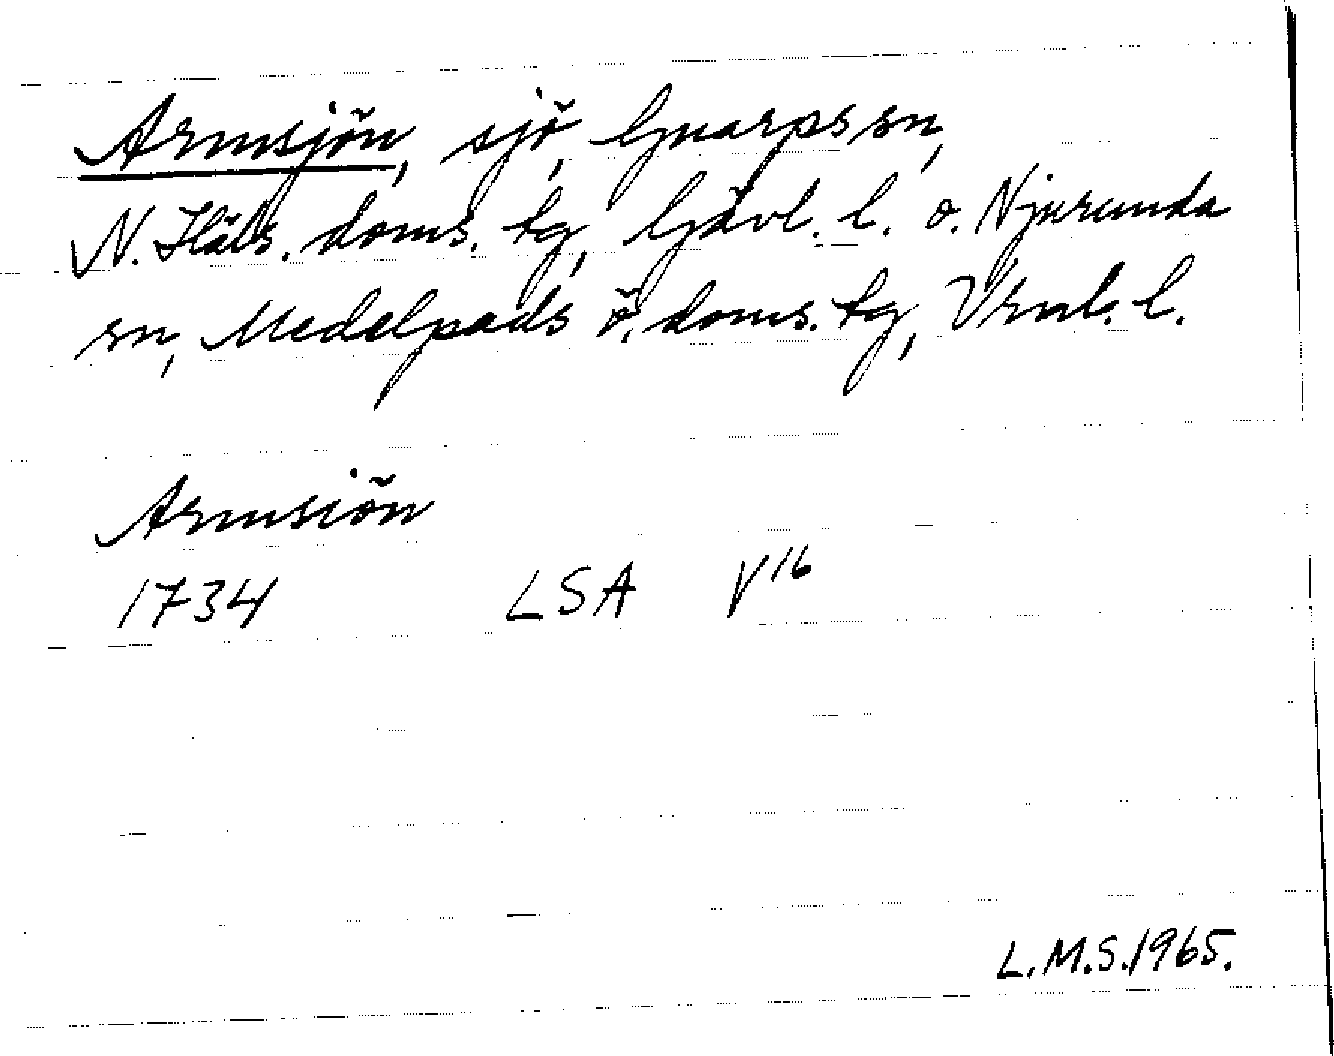 Armsjön, sjö, Gnarps sn,
N. Häls. doms. tg, Gävl. l. o. Njurunda
sn, Medelpads ö. doms. tg, Vrnl. l.
Armsiön
1734 LSA V16
L.M.S. 1965.